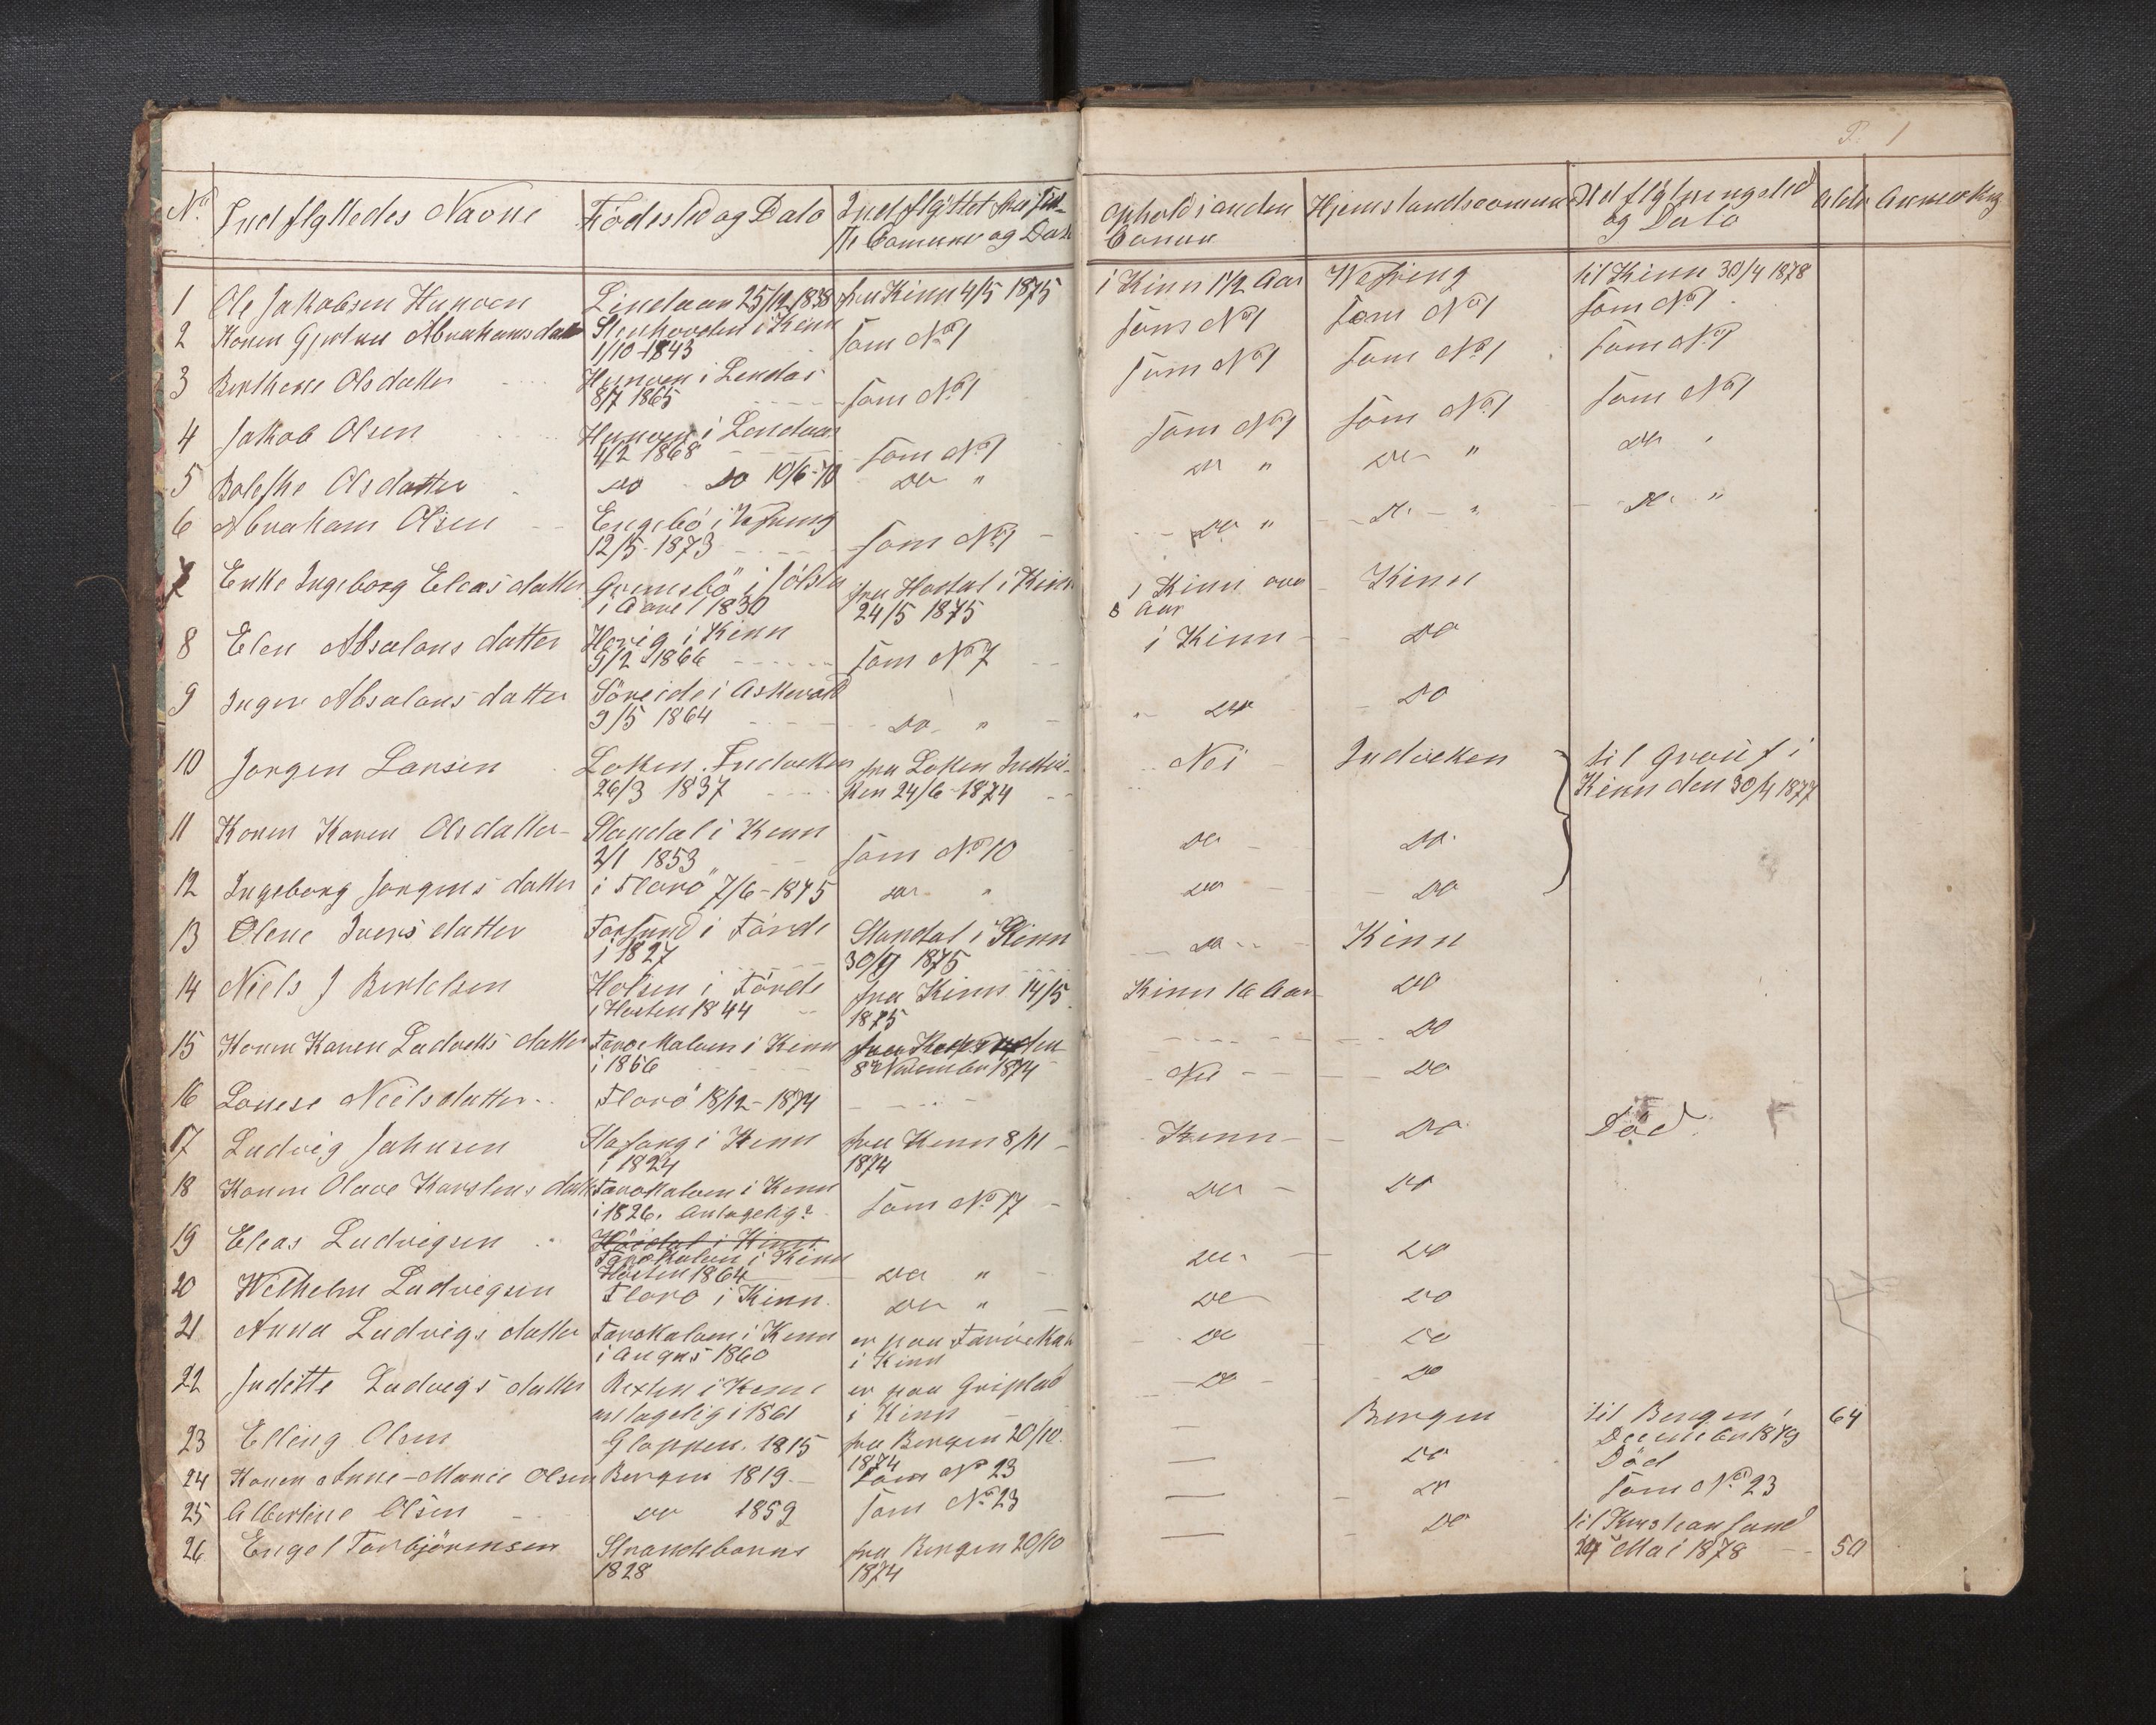 P. 1
No Indflyttedes Navne Födested og Dato Indflyttet fra sid-
ste Comune og Dato
Ophold i anden
Comune
Hjemstandscomune Udflytningsted
og Dato
Alder Anmerkng
1 Ole Jakobsen Hunven Lindaas 25/12 1838 fra Kinn 4/5 1875 i Kinn 1 1/2 Aar Wefring til Kinn 30/4 1878
2 Konen Gjertrue Abrahamsdatter Stenhovden i Kinn
1/10 1843 som No 1 som No 1 som No 1 som No 1
3 Berthene Olsdatter Hunven i Lindås
8/7 1865 som No 1 som No 1 som No 1 som No 1
4 Jakob Olsen Hunven i Lindaas
4/2 1868 som No 1 som No 1 som No 1 som No 1
5 Olsdatter do do 10/6-70 do " do " do " do "
6 Abraham Olsen Engebö i Vefring
12/5 1873 som No 1 do " do " do "
7 Enke Ingeborg Eleasdatter i Jölster
i April 1830 fra i Kinn
24/5 1875 i Kinn over
8 Aar Kinn
8 Elen Absalons datter Hovig i Kinn
9/2 1866 som No 7 i Kinn do
9 Inger Absalons datter Söreide i Askevold
9/5 1864 do " do do
10 Jorgen Larsen Loken Indviken
26/3 1837 fra Loken Indvi-
ken 24/6 1874 Nei Indviken til Grov i
Kinn den 30/4 1877
11 Konen Karen Olsdatter Standal i Kinn
2/1 1853 som No 10 do do
12 Ingeborg Jorgens datter i Florö 7/6-1875 do " do do
13 Olene Ivers datter i Förde
i 1827 Standal i Kinn
1875 do Kinn
14 Niels J Bertelsen Holsen i Förde
i Hösten 1844 fra Kinn 14/5
1875 Kinn 16 Aar do
15 Konen Karen Ludviks datter Tarvekalven i Kinn
i 1856
8de November 1874 do
16 Lovise Nielsdatter Florö 18/12-1874 Nei do
17 Ludvig Johnsen i Kinn
i 1824 fra Kinn 8/11
1874 Kinn do Död
18 Konen Olave Karstens datter Tarvekalven i Kinn
i 1826. antagelig? som No 17 do do
19 Eleas Ludvigsen
Tarvekalven i Kinn
Hösten 1864 do " do do
20 Wilhelm Ludvigsen Florö i Kinn do " do do
21 Anna Ludvigs datter Tarvekalven i Kinn
i August 1860 er paa Tarvekalv
i Kinn do do
22 Juditte Ludvigs datter Rexten i Kinn
antagelig i 1861 er paa
i Kinn do do
23 Elling Olsen Gloppen 1815 fra Bergen 20/10
1874 Bergen til Bergen i
December 1879 64
24 Konen Anne-Marie Olsen Bergen 1819 som No 23 do Död
25 Albertine Olsen do 1859 som No 23 do som No 23
26 Engel Torbjörensen Strandebarm
1828 fra Bergen 20/10
1874 do til Kristiansund
Mai 1878 50